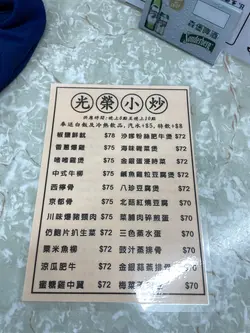 光榮小炒
供應時間:晚上6點至晚上10點
奉送白飯及冷熱飲品,汽水+$5,特飲+$8
椒鹽鮮魷 $78
沙嗲粉絲肥牛煲 $72
薑蔥爆雞 $75
海味雜菜煲 $72
啫啫雞煲 $75
金銀蛋浸時菜 $72
中式牛柳 $75
鹹魚雞粒豆腐煲 $72
西檸骨 $75
八珍豆腐煲 $72
京都骨 $75
北菇紅燒豆腐 $70
川味爆豬頸肉 $75
菜脯肉碎煎蛋 $70
仿鮑片扒生菜 $72
三色蒸水蛋 $70
粟米魚柳 $72
豉汁蒸排骨 $70
涼瓜肥牛 $72
金銀蒜蒸排骨 $70
蜜糖雞中翼 $72
梅菜 $70